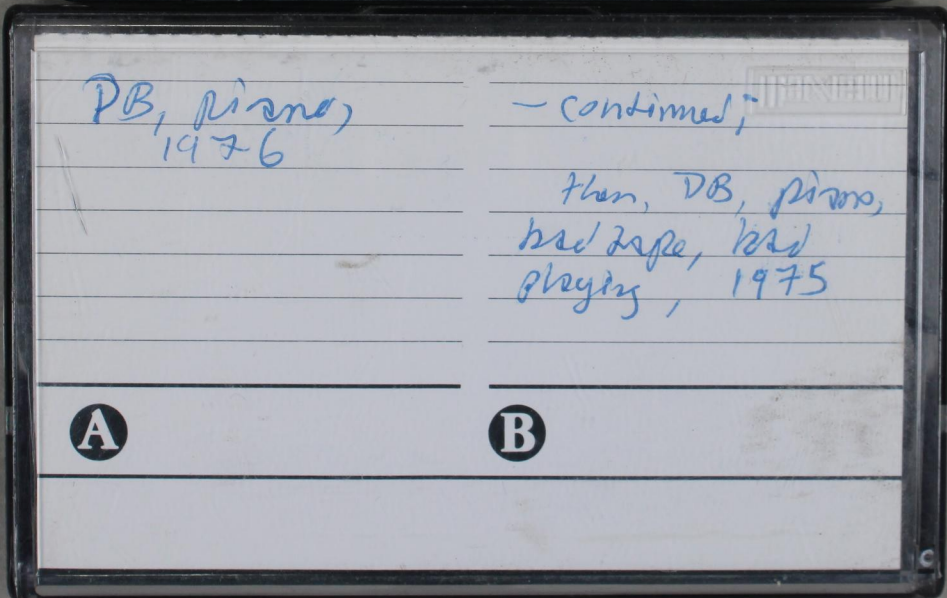 DB, piano,
1976
A
- continued;
then, DB, piano,
bad tape, bad
playing, 1975
B
maxell